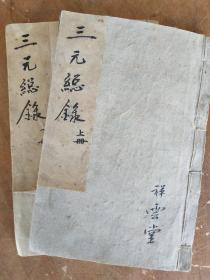 三元總錄
三元總錄
上冊
祥雲堂